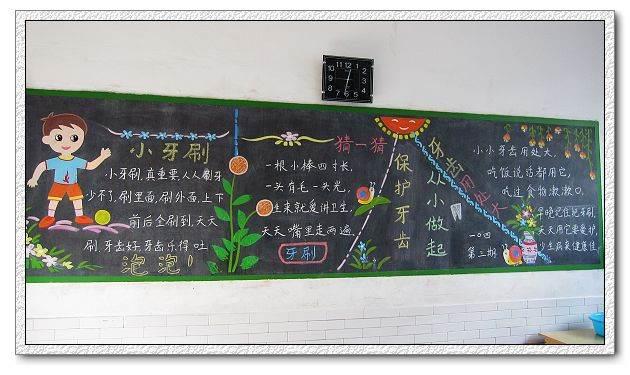 小牙刷
小牙刷,真重要,人人刷牙
少不了,刷里面,刷外面,上下
前后全刷到,天天
刷,牙齿好,牙齿乐得吐
泡泡!
猜一猜
一根小棒四寸长,
一头有毛一头光,
生来就爱讲卫生,
天天嘴里走两遍,
牙刷
保护牙齿
从小做起
牙齿用处大
小小牙齿用处大,
吃饭说话都用它,
吃过食物漱漱口,
早晚记住把牙刷,
天天用它要爱护,
少生病来健康佳,
一〇四
第三期